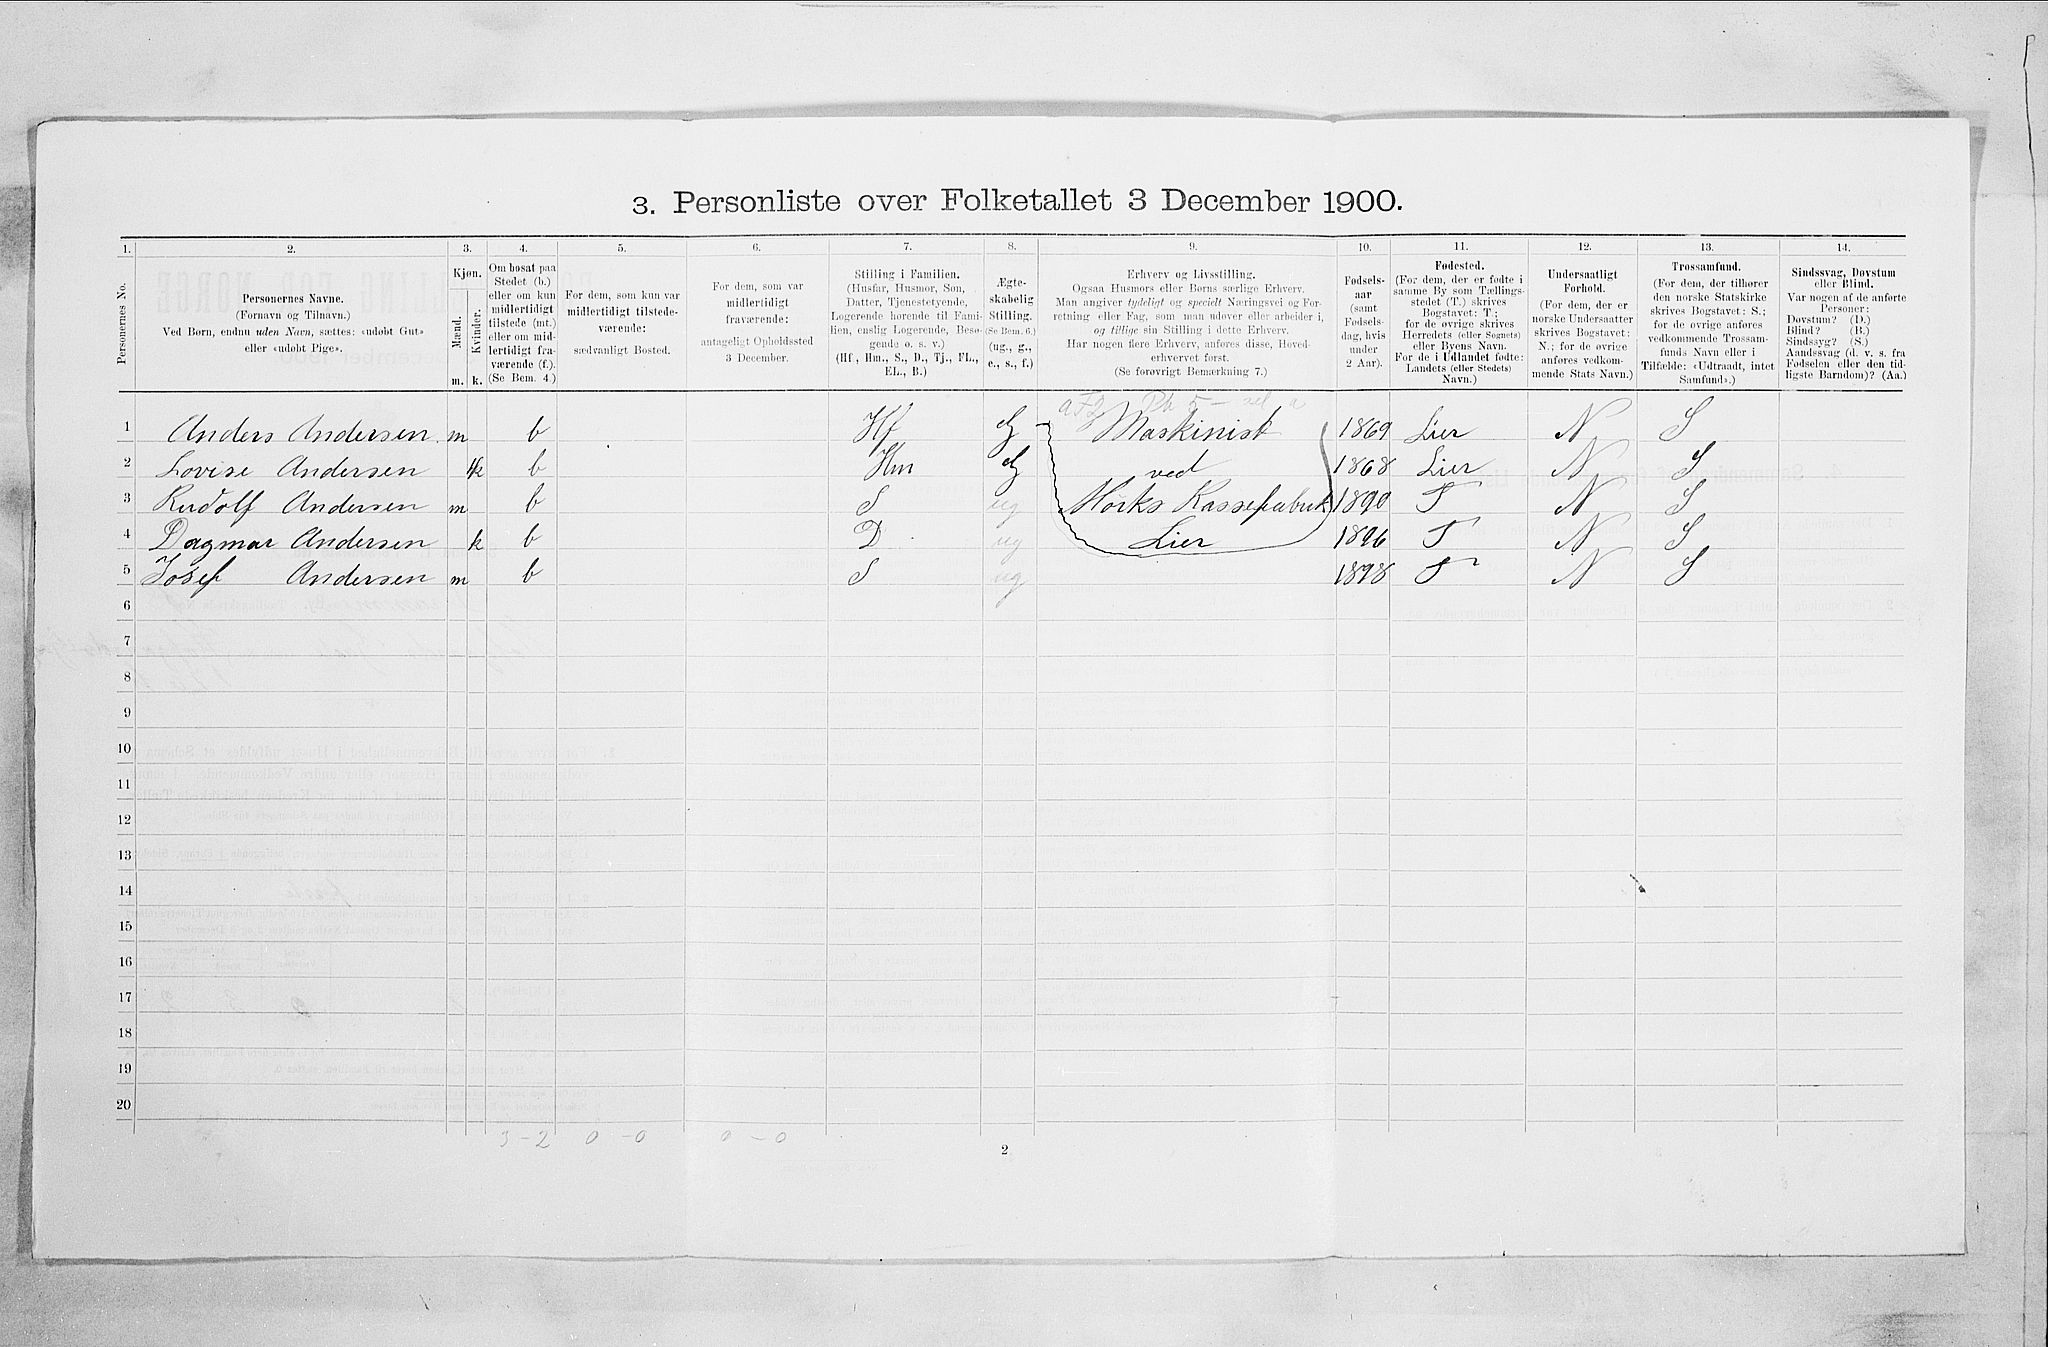 3. Personliste over Folketallet 3 December 1900.
1. 2. 3. 4. 5. 6. 7. 8. 9. 10. 11. 12. 13. 14.
Personernes No.
Personernes Navne.
(Fornavn og Tilnavn.)
Ved Børn, endnu uden Navn, sættes: «udøbt Gut»
eller «udøbt Pige».
Kjøn.
Mænd.
Kvinder.
m. k.
Om bosat paa
Stedet (b.)
eller om kun
midlertidigt
tilstede (mt.)
eller om mid-
lertidigt fra-
værende (f.).
(Se Bem. 4.)
For dem, som kun var
midlertidigt tilstede-
værende:
sædvanligt Bosted.
For dem, som var
midlertidigt
fraværende:
antageligt Opholdssted
3 December.
Stilling i Familien.
(Husfar, Husmor, Søn,
Datter, Tjenestetyende,
Logerende hørende til Fami-
lien, enslig Logerende, Besø-
gende o. s. v.)
(Hf., Hm., S., D., Tj., FL.,
EL., B.)
Ægte-
skabelig
Stilling.
(Se Bem. 6.)
(ug., g.,
e., s., f.)
Erhverv og Livsstilling.
Ogsaa Husmors eller Børns særlige Erhverv.
Man angiver tydeligt og specielt Næringsvei og For-
retning eller Fag, som man udøver eller arbeider i,
og tillige sin Stilling i dette Erhverv.
Har nogen flere Erhverv, anføres disse, Hoved-
erhvervet først.
(Se forøvrigt Bemærkning 7.)
Fødsels-
aar
(samt
Fødsels-
dag, hvis
under
2 Aar).
Fødested.
(For dem, der er fødte i
samme By som Tællings-
stedet (T.) skrives
Bogstavet: T;
for de øvrige skrives
Herredets (eller Sognets)
eller Byens Navn.
For de i Udlandet fødte:
Landets (eller Stedets)
Navn.)
Undersaatligt
Forhold.
(For dem, der er
norske Undersaatter
skrives Bogstavet:
N.; for de øvrige
anføres vedkom-
mende Stats Navn.)
Trossamfund.
(For dem, der tilhører
den norske Statskirke
skrives Bogstavet: S.;
for de øvrige anføres
vedkommende Trossam-
funds Navn eller i
Tilfælde: «Udtraadt, intet
Samfund».)
Sindssvag, Døvstum
eller Blind.
Var nogen af de anførte
Personer:
Døvstum? (D.)
Blind? (B.)
Sindssyg? (S.)
Aandssvag (d. v. s. fra
Fødselen eller den tid-
ligste Barndom)? (Aa.)
1 Anders Andersen m b Hf g Maskinist 1869 Lier N S
2 Lovise Andersen k b Hm g ved 1868 Lier N S
3 Rudolf Andersen m b S ug Mørks Kassefabrik 1890 T N S
4 Dagmar Andersen k b D ug Lier 1896 T N S
5 Josef Andersen m b S ug 1898 T N S
6
7
8
9
10
11
12
13
14
15
16
17
18
19
20
3-2 0-0 0-0
2